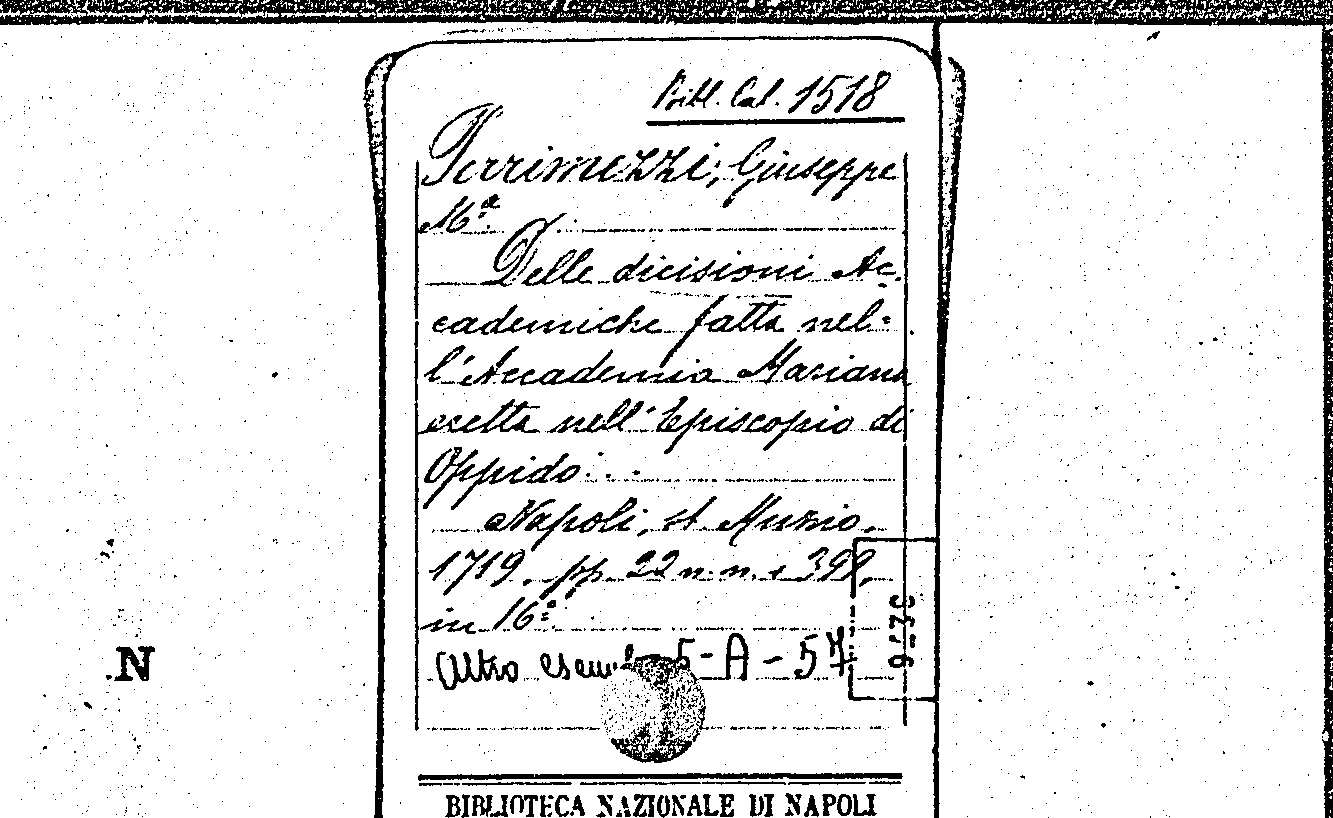 Bibl. Cal. 1518
Perrimezzi, Giuseppe
Mª.
Delle dicisioni Ac-
cademiche fatta nel-
l'Accademia Mariana
eretta nell'Episcopio di
Oppido . . .
Napoli, st. Muzio,
1719, pp. 22 n. n. e 398,
in 16º.
Altro 5-A-57
N
BIBLIOTECA NAZIONALE DI NAPOLI